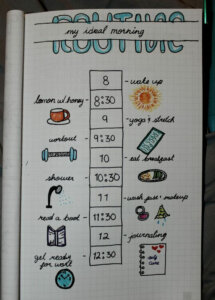 ROUTINE
my ideal morning
8 - wake up
lemon w/ honey - 8:30
9 - yoga & stretch
workout - 9:30
10 - eat breakfast
shower - 10:30
11 - wash face & makeup
read a book - 11:30
12 - journaling
get ready
for work - 12:30